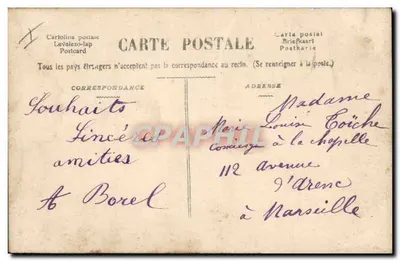 Cartolina postale
Levelezo-lap
Postcard
CARTE POSTALE
Carta postal
Briefkaart
Postkarte
Tous les pays étrangers n'acceptent pas la correspondance au recto. (Se renseigner à la poste.)
CORRESPONDANCE
ADRESSE
Souhaits
Sincères
amitiés
A Borel
Madame
Marie Louise Toïche
Concierge à la chapelle
112 avenue
d'Arenc
à Marseille
CPAPHIL